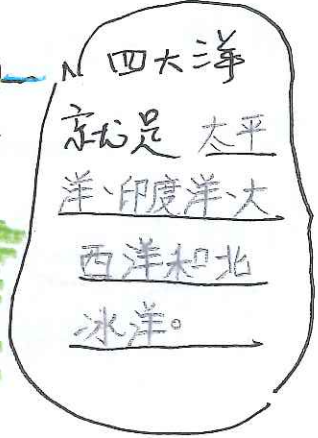 四大洋
就是太平
洋、印度洋、大
西洋和北
冰洋。